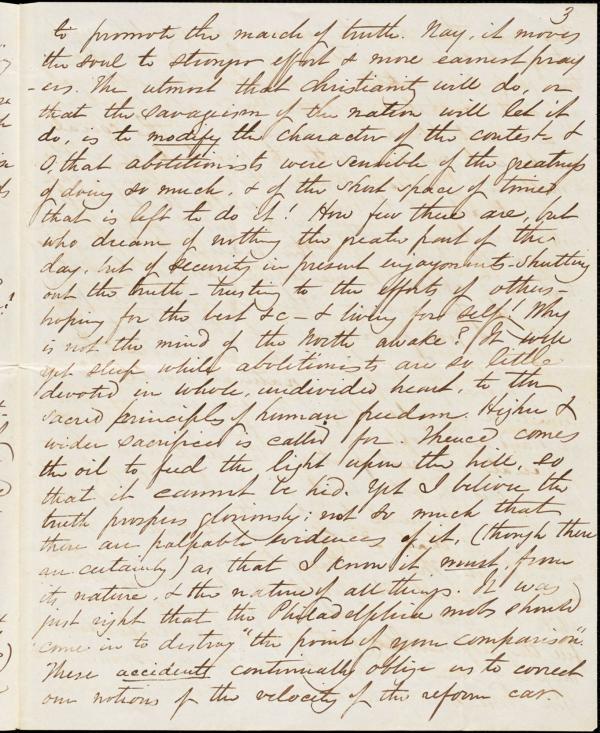 3
to promote the march of truth. Nay, it moves
the soul to stronger effort & more earnest pray
-ers. The utmost that Christianity will do, or
that the savageism of the nation will let it
do, is to modify the character of the contest &
O, that abolitionists were sensible of the greatness
of doing so much, & of the short space of time
that is left to do it! How few there are, but
who dream of nothing the greater part of the
day, but of security in present enjoyments - shutting
out the truth - trusting to the efforts of others -
hoping for the best &c - & living for self! Why
is not the mind of the North awake? It will
yet sleep while abolitionists are so little
devoted in whole, undivided heart to the
sacred principles of human freedom. Higher &
wider sacrifices is called for. Thence comes
the oil to feed the light upon the hill so
that it cannot be hid. Yet I believe the
truth prospers gloriously; not so much that
there are palpable evidences of it, (though there
are certainly) as that I know it must, from
its nature, & the nature of all things. It was
just right that the Philadelphia mobs should
come in to destroy "the point of your comparison".
These accidents continually oblige us to correct
our notions of the velocity of the reform car.